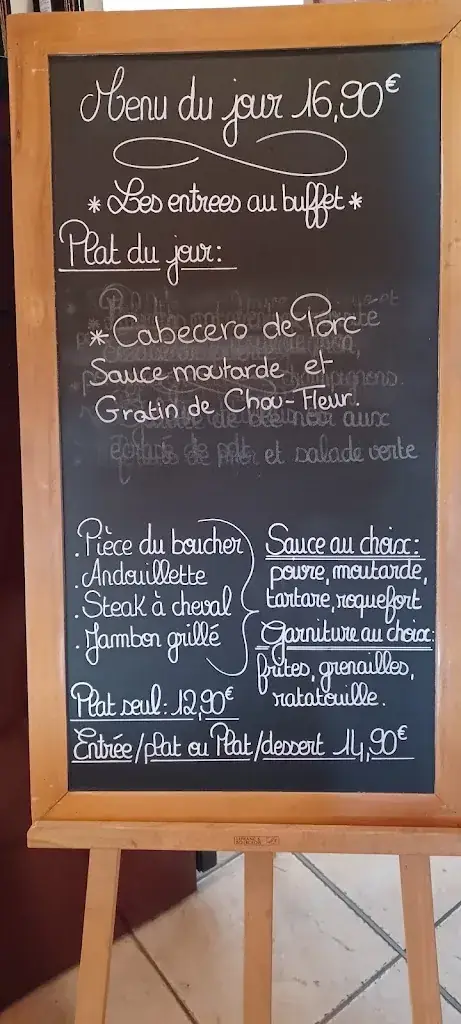 Menu du jour 16,90€
* Les entrees au buffet *
Plat du jour:
* Cabecero de Porc
Sauce moutarde et
Gratin de Chou-Fleur.
et salade verte
. Pièce du boucher
. Andouillette
. Steak à cheval
. Jambon grillé
Sauce au choix:
poivre, moutarde,
tartare, roquefort
Garniture au choix:
frites, grenailles,
ratatouille.
Plat seul: 12,90€
Entrée/plat ou Plat/dessert 14,90€